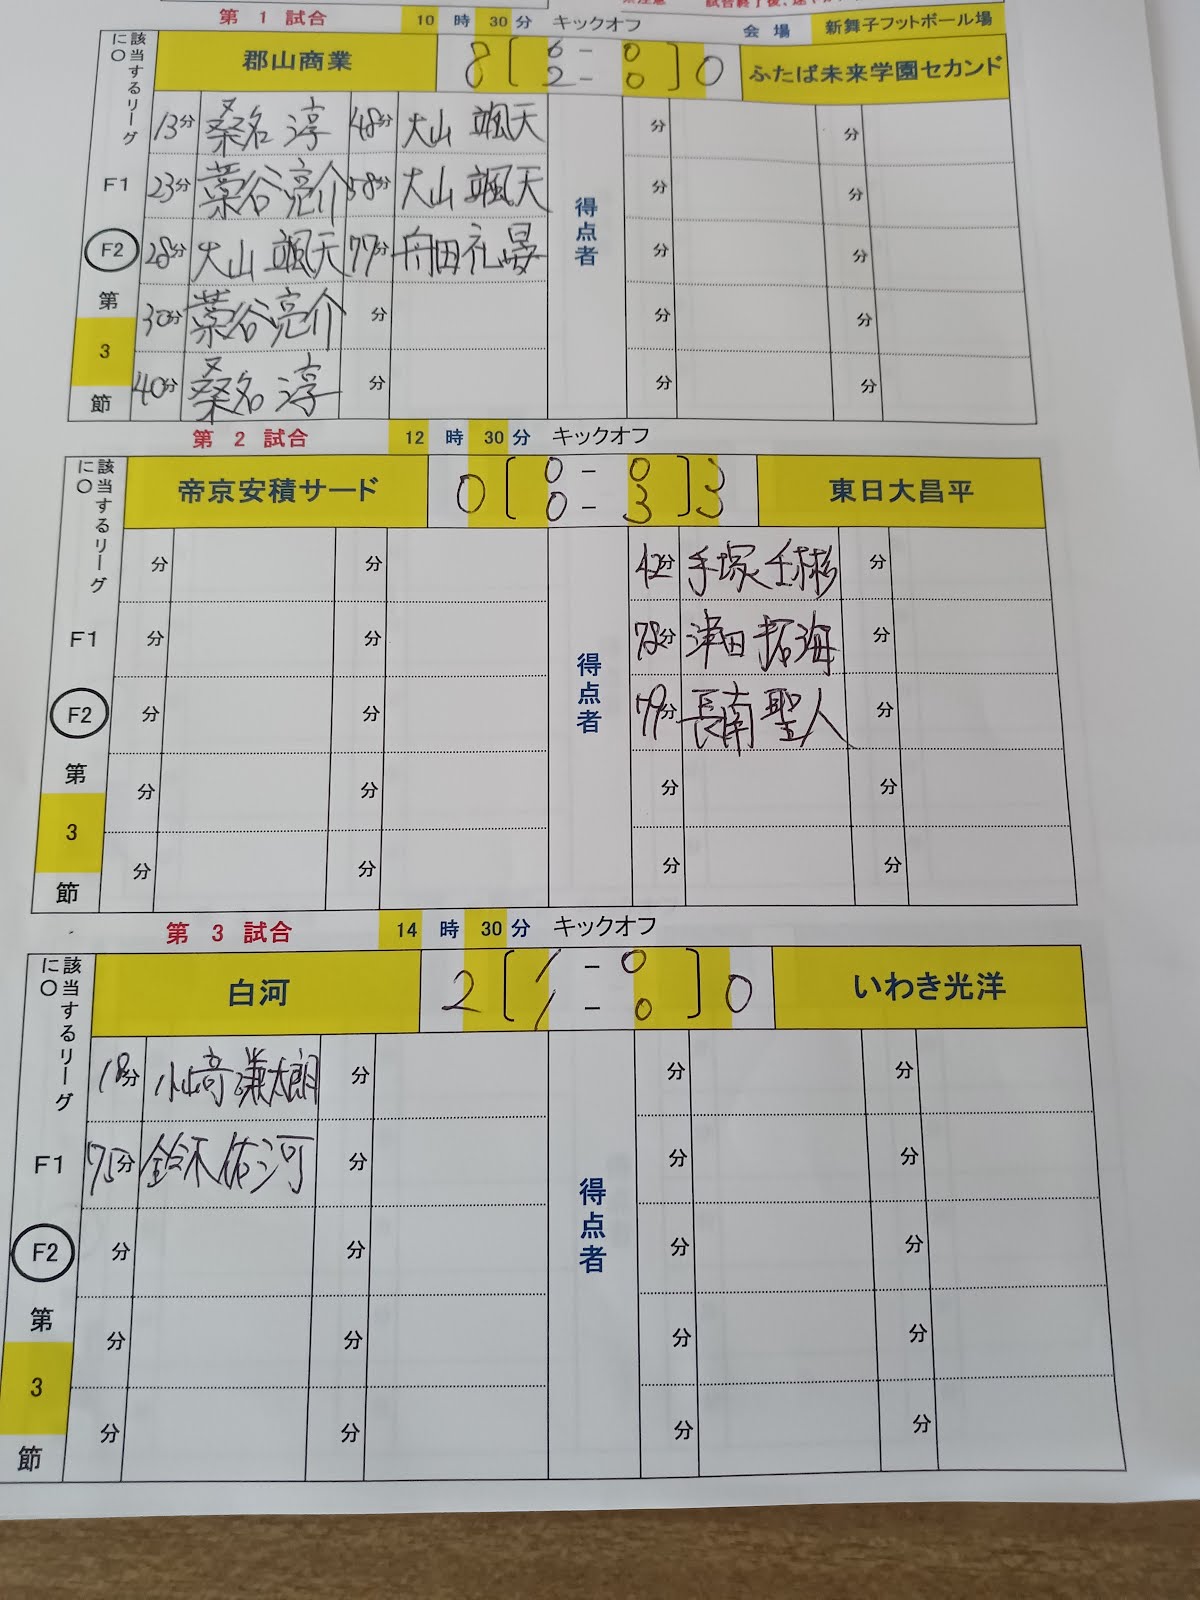 第 1 試合 10 時 30 分 キックオフ 会 場 新舞子フットボール場
該当するリーグに○
郡山商業 8 [ 6 - 0 2 - 0 ] 0 ふたば未来学園セカンド
13分 桑名 淳 48分 大山 颯天 分 分
F1 23分 藁谷亮介 58分 大山 颯天 得点者 分 分
F2 28分 大山 颯天 77分 舟田 分 分
第 30分 藁谷亮介 分 分 分
3
節 40分 桑名 淳 分 分 分
第 2 試合 12 時 30 分 キックオフ
該当するリーグに○
帝京安積サード 0 [ 0 - 0 0 - 3 ] 3 東日大昌平
分 分 42分 手塚 分
F1 分 分 得点者 78分 津田 拓海 分
F2 分 分 79分 長南 聖人 分
第 分 分 分 分
3
節 分 分 分 分
第 3 試合 14 時 30 分 キックオフ
該当するリーグに○
白河 2 [ 1 - 0 1 - 0 ] 0 いわき光洋
18分 小崎 謙太朗 分 分 分
F1 75分 鈴木 佑河 分 得点者 分 分
F2 分 分 分 分
第 分 分 分 分
3
節 分 分 分 分